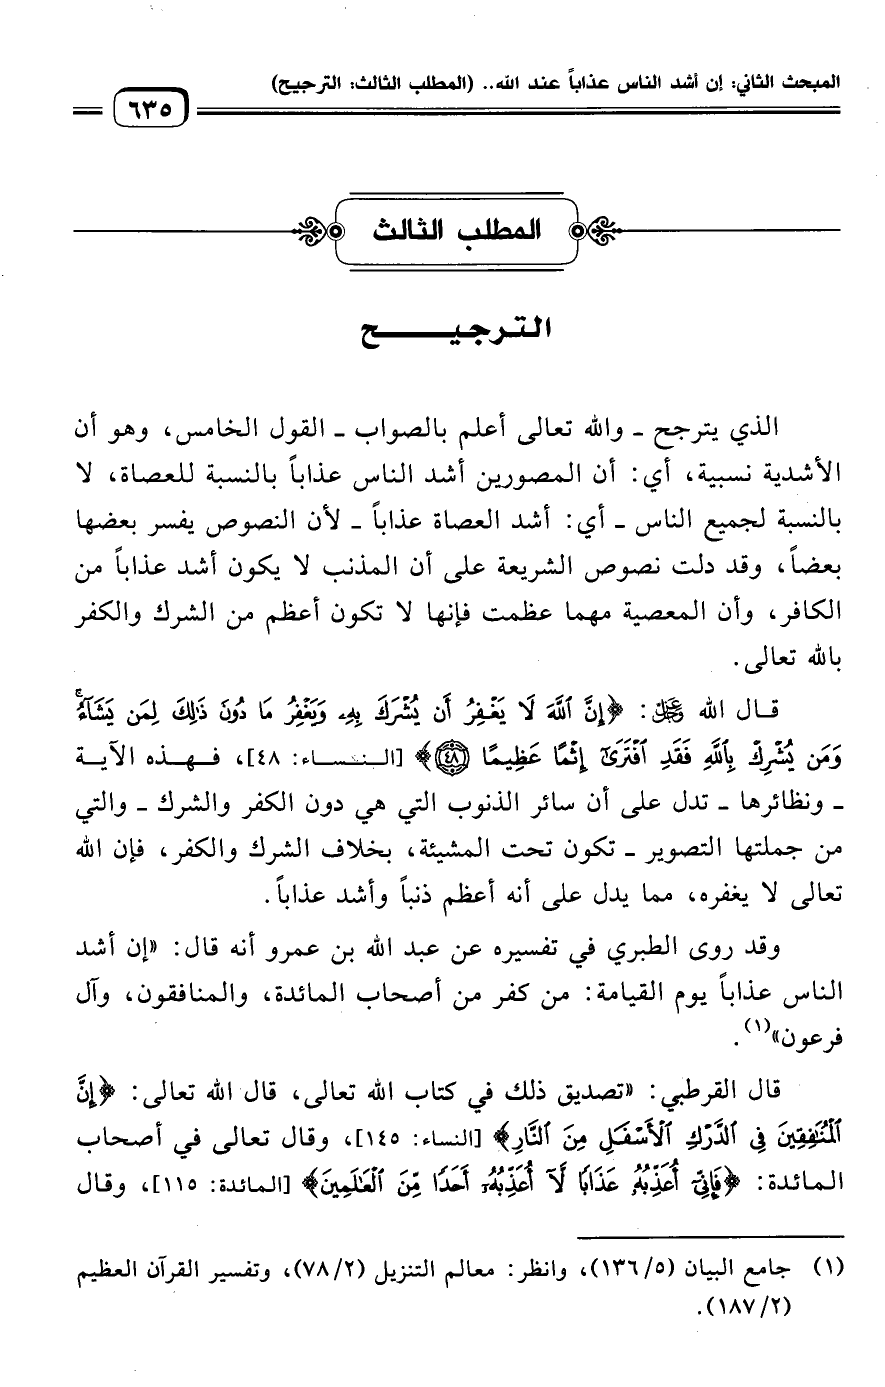 المبحث الثاني: إن أشد الناس عذاباً عند الله.. (المطلب الثالث: الترجيح)
٦٣٥
المطلب الثالث
الترجيـــــح
الذي يترجح ـ والله تعالى أعلم بالصواب ـ القول الخامس، وهو أن
الأشدية نسبية، أي: أن المصورين أشد الناس عذاباً بالنسبة للعصاة، لا
بالنسبة لجميع الناس ـ أي: أشد العصاة عذاباً ـ لأن النصوص يفسر بعضها
بعضاً، وقد دلت نصوص الشريعة على أن المذنب لا يكون أشد عذاباً من
الكافر، وأن المعصية مهما عظمت فإنها لا تكون أعظم من الشرك والكفر
بالله تعالى.
قـال الله ﷻ: ﴿إِنَّ ٱللَّهَ لَا يَغْفِرُ أَن يُشْرَكَ بِهِۦ وَيَغْفِرُ مَا دُونَ ذَٰلِكَ لِمَن يَشَآءُۚ
وَمَن يُشْرِكْ بِٱللَّهِ فَقَدِ ٱفْتَرَىٰٓ إِثْمًا عَظِيمًا ٤٨﴾ [الـنـسـاء: ٤٨]، فـهـذه الآيـة
ـ ونظائرها ـ تدل على أن سائر الذنوب التي هي دون الكفر والشرك ـ والتي
من جملتها التصوير ـ تكون تحت المشيئة، بخلاف الشرك والكفر، فإن الله
تعالى لا يغفره، مما يدل على أنه أعظم ذنباً وأشد عذاباً.
وقد روى الطبري في تفسيره عن عبد الله بن عمرو أنه قال: «إن أشد
الناس عذاباً يوم القيامة: من كفر من أصحاب المائدة، والمنافقون، وآل
فرعون»(١).
قال القرطبي: «تصديق ذلك في كتاب الله تعالى، قال الله تعالى: ﴿إِنَّ
ٱلْمُنَٰفِقِينَ فِى ٱلدَّرْكِ ٱلْأَسْفَلِ مِنَ ٱلنَّارِ﴾ [النساء: ١٤٥]، وقال تعالى في أصحاب
المائدة: ﴿فَإِنِّىٓ أُعَذِّبُهُۥ عَذَابًا لَّآ أُعَذِّبُهُۥٓ أَحَدًا مِّنَ ٱلْعَٰلَمِينَ﴾ [المائدة: ١١٥]، وقال
(١) جامع البيان (٥/ ١٣٦)، وانظر: معالم التنزيل (٢/ ٧٨)، وتفسير القرآن العظيم
(٢/ ١٨٧).